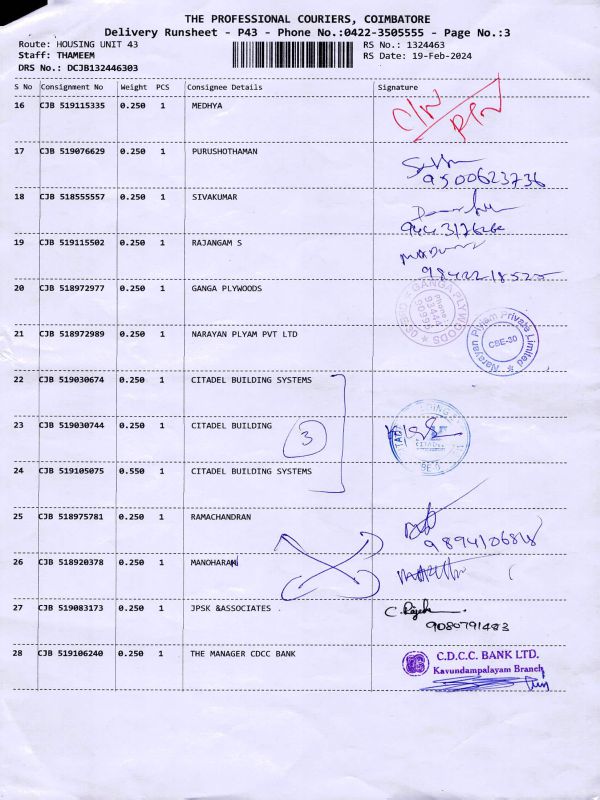 THE PROFESSIONAL COURIERS, COIMBATORE
Delivery Runsheet - P43 - Phone No.:0422-3505555 - Page No.:3
Route: HOUSING UNIT 43 RS No.: 1324463
Staff: THAMEEM RS Date: 19-Feb-2024
DRS No.: DCJB132446303
S No Consignment No Weight PCS Consignee Details Signature
16 CJB 519115335 0.250 1 MEDHYA
17 CJB 519076629 0.250 1 PURUSHOTHAMAN
9500623736
18 CJB 518555557 0.250 1 SIVAKUMAR
19 CJB 519115502 0.250 1 RAJANGAM S
20 CJB 518972977 0.250 1 GANGA PLYWOODS
GANGA PLYWOODS
21 CJB 518972989 0.250 1 NARAYAN PLYAM PVT LTD
Narayan Plyam Private Limited
CBE-30
22 CJB 519030674 0.250 1 CITADEL BUILDING SYSTEMS
23 CJB 519030744 0.250 1 CITADEL BUILDING
3
24 CJB 519105075 0.550 1 CITADEL BUILDING SYSTEMS
25 CJB 518975781 0.250 1 RAMACHANDRAN
26 CJB 518920378 0.250 1 MANOHARAN
27 CJB 519083173 0.250 1 JPSK &ASSOCIATES .
C. Rajesh
9080791483
28 CJB 519106240 0.250 1 THE MANAGER CDCC BANK
C.D.C.C. BANK LTD.
Kavundampalayam Branch